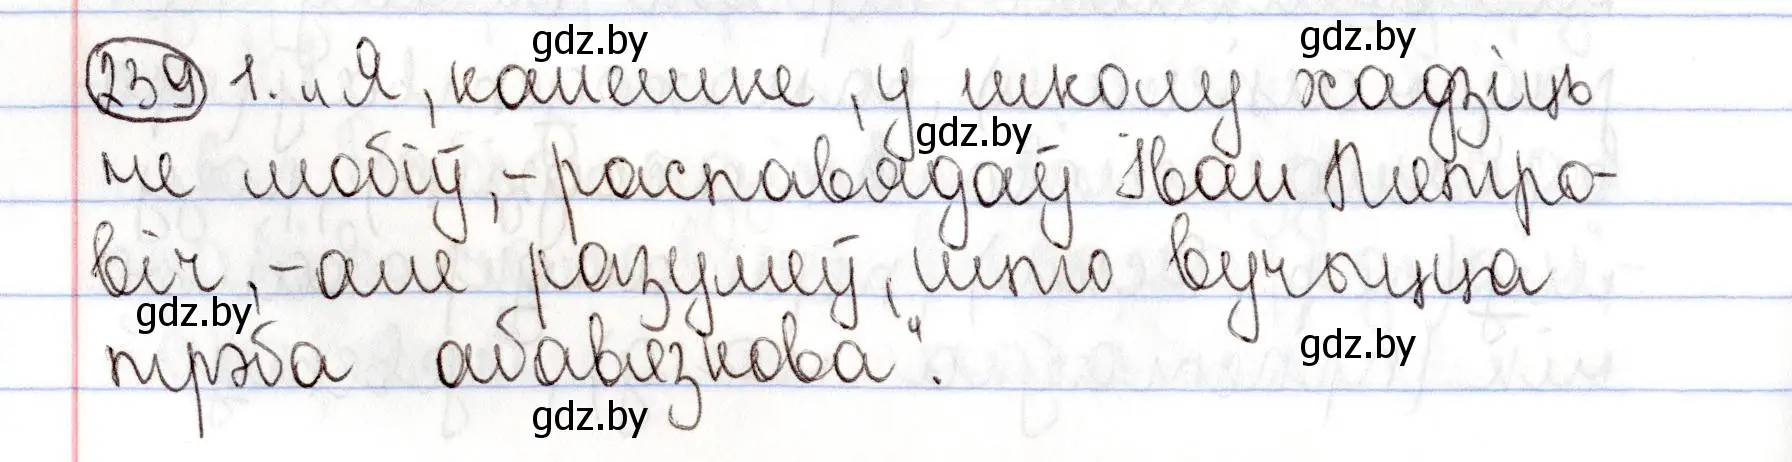 gdz.by
gdz.by
239 1. „Я, канешне, у школу хадзіць
gdz.by
не любіў, - распавядаў Іван Пятро-
віч, - але разумеў, што вучыцца
gdz.by
трэба абавязкова“.
gdz.by
gdz.by